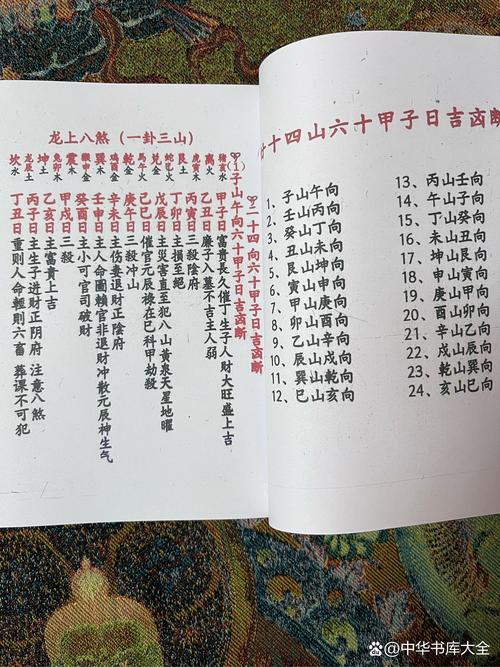 龙上八煞（一卦三山）
坎水 龙辰土 坤土 兔卯木 震木 猴申金 巽木 鸡酉金 乾金 马午火 兑金 蛇巳火 艮土 虎寅木 离火 猪亥水
二十四向六十甲子日吉凶断
(1)子山午向六十甲子日吉凶断
甲子日富貴長久催丁生子人財大旺盛上吉
乙丑日廉子入墓不吉主人弱
丙寅日三殺陰府
丁卯日主損至絕
戊辰日主災害直至犯八山黄泉天星地曜
己巳日催官元辰祿在巳科甲劫殺
庚午日三殺冲山
辛未日主伤妻退財正陰府
壬申日主人命圖賴官非退財冲散元辰神生气
癸酉日主小可官司破財
甲戌日三殺
乙亥日主富貴上吉
丙子日主生子进財正阴府 注意八煞
丁丑日重則人命輕則六畜 葬课不可犯
十四山六十甲子日吉凶断
1、子山午向
2、壬山丙向
3、癸山丁向
4、丑山未向
5、艮山坤向
6、寅山申向
7、甲山庚向
8、卯山酉向
9、乙山辛向
10、辰山戌向
11、巽山乾向
12、巳山亥向
13、丙山壬向
14、午山子向
15、丁山癸向
16、未山丑向
17、坤山艮向
18、申山寅向
19、庚山甲向
20、酉山卯向
21、辛山乙向
22、戌山辰向
23、乾山巽向
24、亥山巳向
@中华书库大全